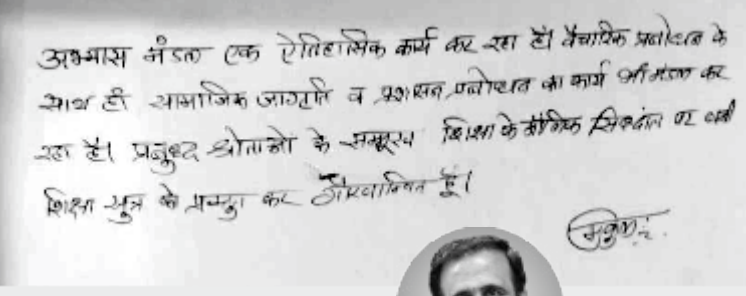 अभ्यास मंडल एक ऐतिहासिक कार्य कर रहा है। वैचारिक प्रबोधन के
साथ ही सामाजिक जागृति व प्रशासन प्रबोधन का कार्य भी मंडल कर
रहा है। प्रबुध्द श्रोताओ के सम्मुख शिक्षा के मौलिक सिध्दांत पर
शिक्षा सूत्र के प्रस्तुत कर गौरवान्वित हूँ।